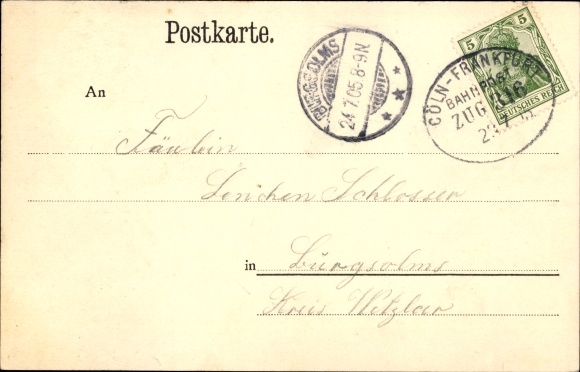 Postkarte.
BURGSOLMS
24.7.05 8-9N.
5 5
DEUTSCHES REICH
CÖLN-FRANKFURT
BAHNPOST
ZUG 316
23.7
An
Fräulein
Lenchen Schlosser
in Burgsolms
Kreis Wetzlar